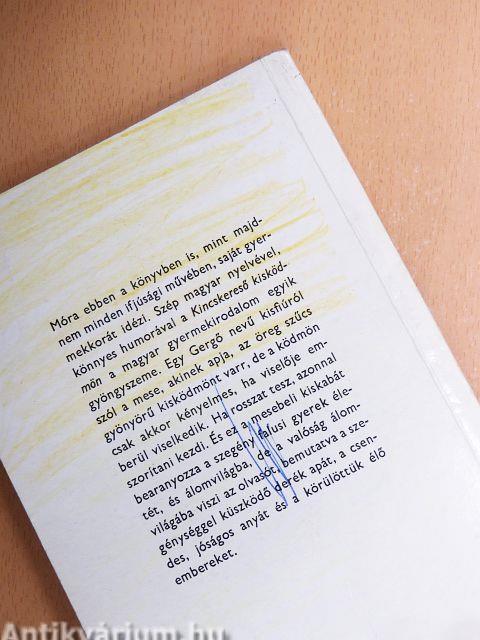 Móra ebben a könyvben is, mint majd-
nem minden ifjúsági művében, saját gyer-
mekkorát idézi. Szép magyar nyelvével,
könnyes humorával a Kincskereső kisköd-
mön a magyar gyermekirodalom egyik
gyöngyszeme. Egy Gergő nevű kisfiúról
szól a mese, akinek apja, az öreg szűcs
gyönyörű kisködmönt varr, de a ködmön
csak akkor kényelmes, ha viselője em-
berül viselkedik. Ha rosszat tesz, azonnal
szorítani kezdi. És ez a mesebeli kiskabát
bearanyozza a szegény falusi gyerek éle-
tét, és álomvilágba, de a valóság álom-
világába viszi az olvasót, bemutatva a sze-
génységgel küszködő derék apát, a csen-
des, jóságos anyát és a körülöttük élő
embereket.
Antikvárium.hu